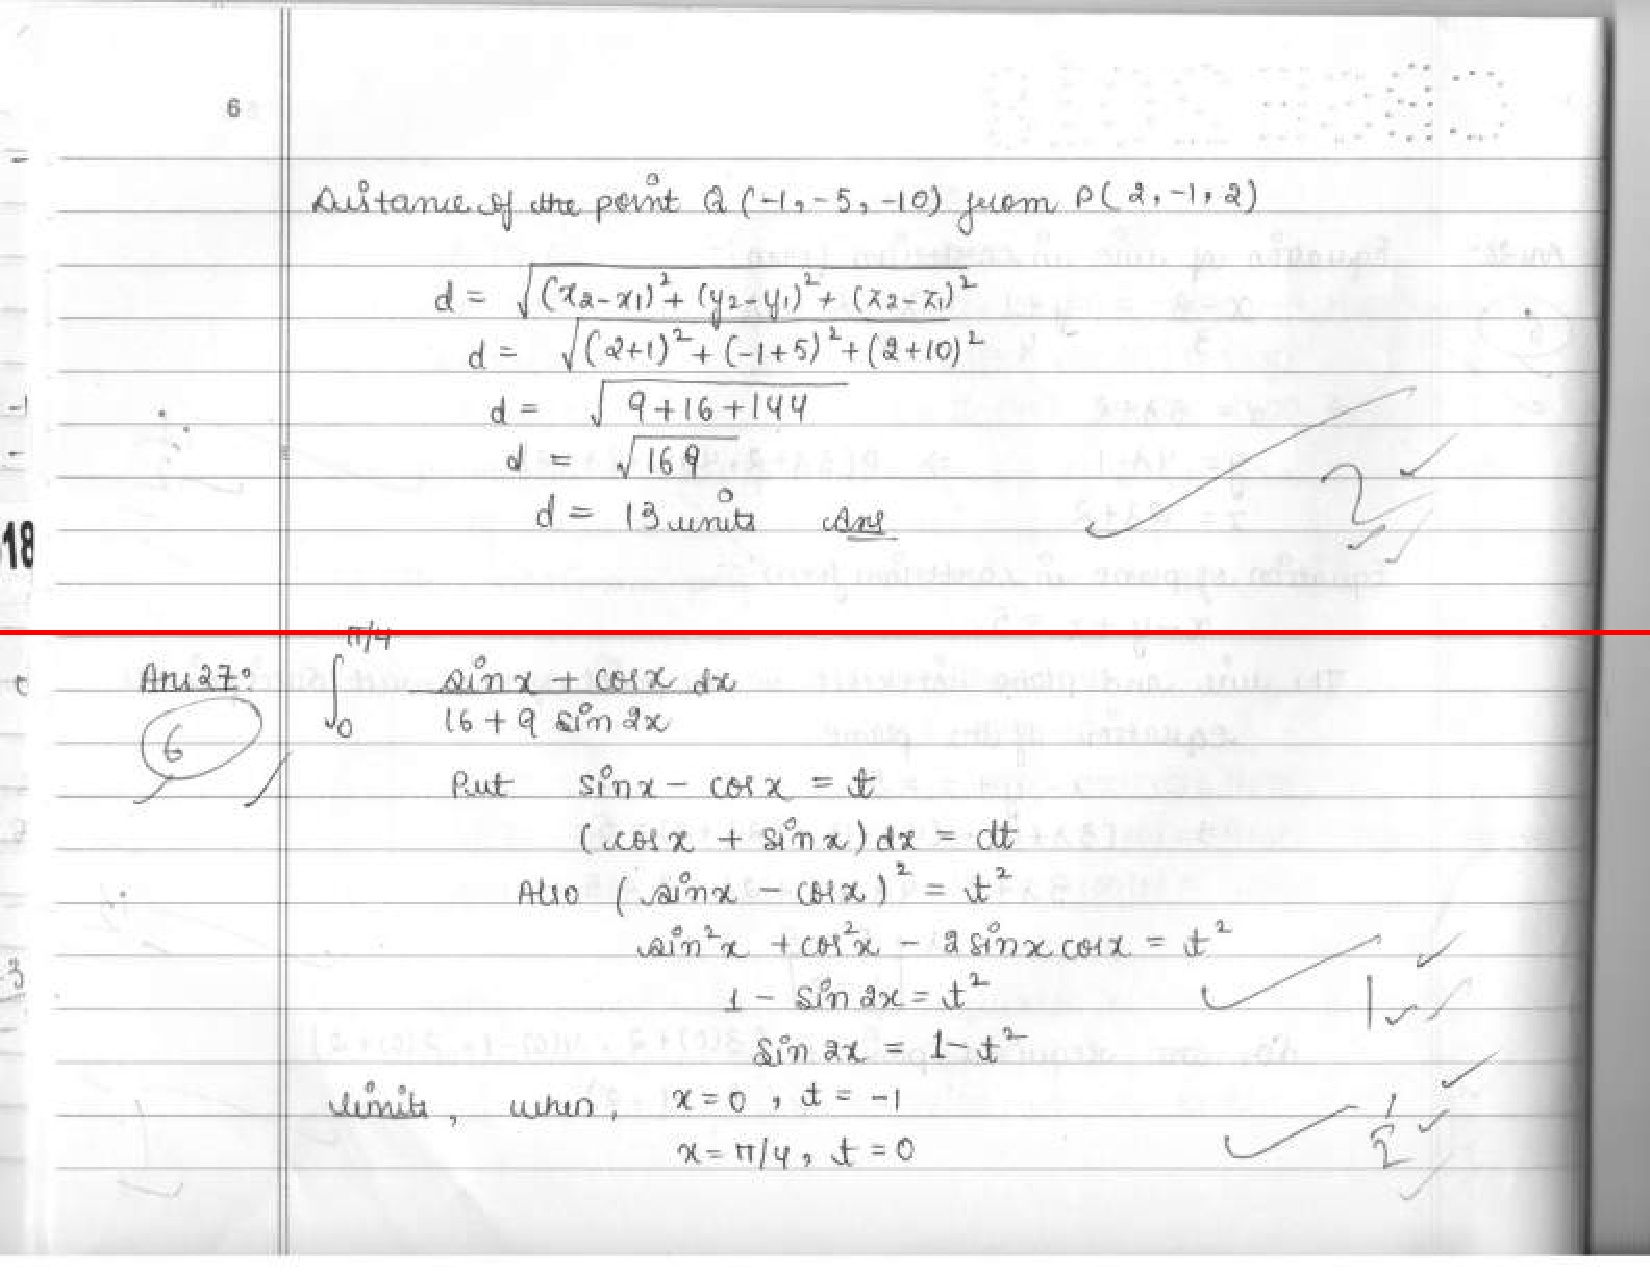 6
Distance of the point Q (-1, -5, -10) from P(2, -1, 2)
d = √(x2-x1)² + (y2-y1)² + (z2-z1)²
d = √(2+1)² + (-1+5)² + (2+10)²
d = √9+16+144
d = √169
2
d = 13 units Ans
18
Ans 27: ∫₀^π/4 sinx + cosx dx / 16 + 9 sin 2x
6
Put sinx - cosx = t
(cosx + sinx) dx = dt
Also (sinx - cosx)² = t²
sin²x + cos²x - 2 sinx cosx = t²
1 - sin 2x = t²
1
sin 2x = 1-t²
limits, when, x=0, t = -1
1/2
x = π/4, t = 0